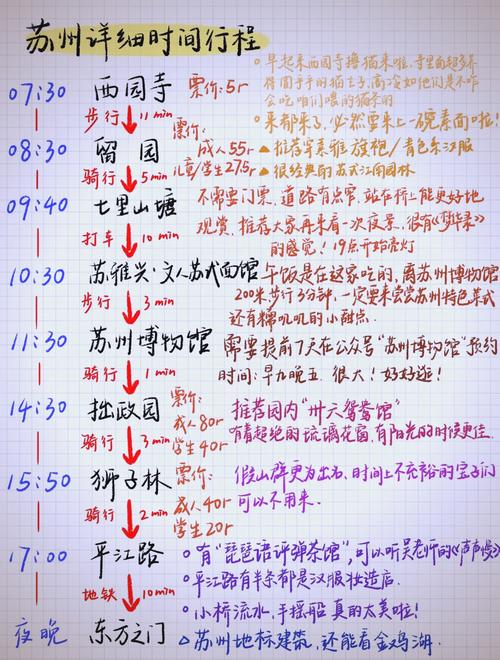 苏州详细时间行程
07:30 西园寺 票价:5r
早起来西园寺撸猫来啦,寺里面超多养
得圆乎乎的猫主子,高冷如他们是不咋
会吃咱们喂的猫条的
来都来了,必然要来上一碗素面啦!
步行 11min
08:30 留园 票价: 成人55r 儿童/学生27.5r
推荐穿素雅旗袍/青色系汉服
很经典的苏式江南园林
骑行 5min
09:40 七里山塘
不需要门票,道路有点窄,站在桥上能更好地
观赏,推荐大家再来看一次夜景,很有《梦华录》
的感觉!19点开始亮灯
打车 10min
10:30 苏雅兴·文人苏式面馆
午饭是在这家吃的,离苏州博物馆
200米步行3分钟,一定要来尝尝苏州特色菜式
还有糯叽叽的小甜点.
步行 3min
11:30 苏州博物馆
需要提前7天在公众号“苏州博物馆”预约
时间:早九晚五.很大!好好逛!
骑行 1min
14:30 拙政园 票价: 成人80r 学生40r
推荐园内“卅六鸳鸯馆”
有着超绝的琉璃花窗,有阳光的时候更佳
骑行 3min
15:50 狮子林 票价: 成人40r 学生20r
假山群更为出名,时间上不充裕的宝子们
可以不用来.
骑行 2min
17:00 平江路
有“琵琶语评弹茶馆”,可以听吴老师的《声声慢》
平江路有半条都是汉服妆造店.
小桥流水,手摇船真的太美啦!
地铁 10min
夜晚 东方之门
苏州地标建筑,还能看金鸡湖.